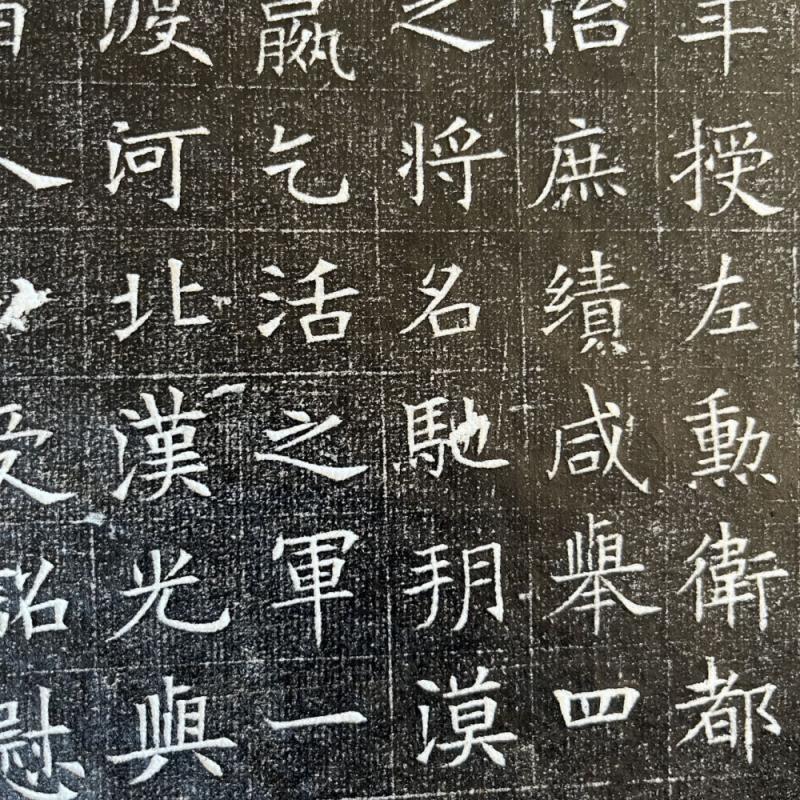 年授左勳衛都
治庶績咸舉四
之將名馳玥漠
嬴乞活之軍一
渡河北漢光與
受詔慰